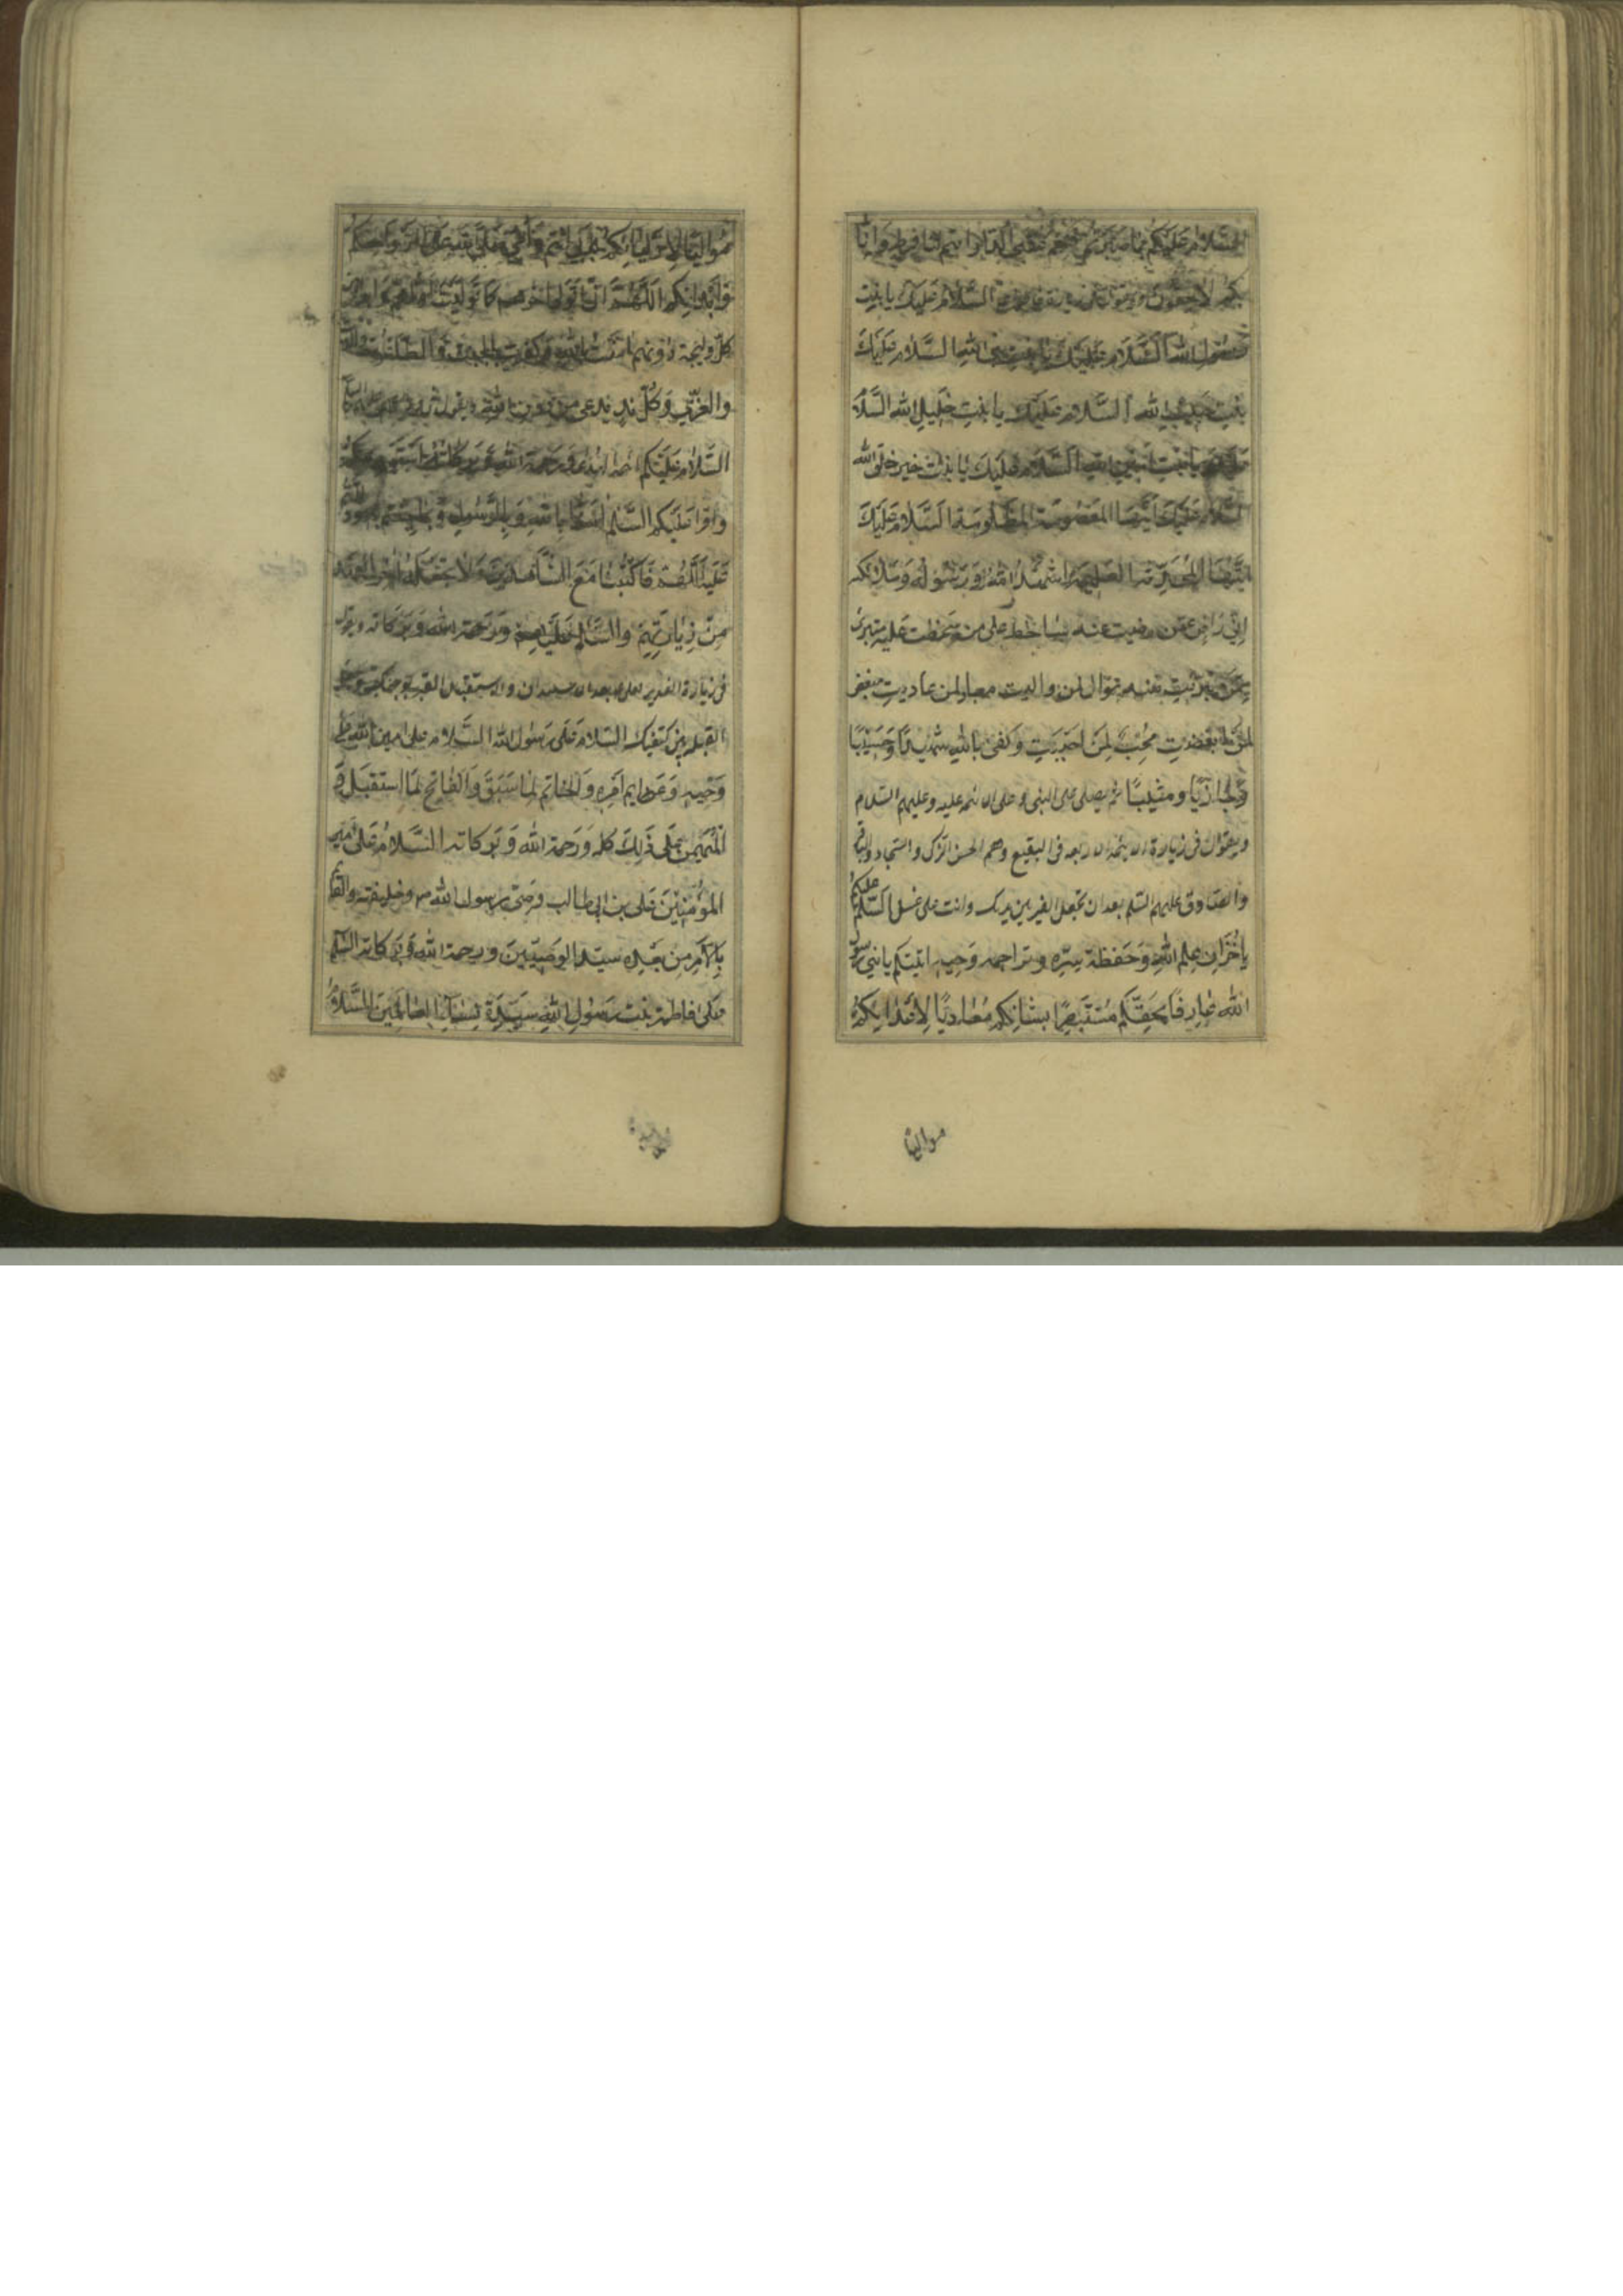 السلام عليكم بما صبرتم فنعم عقبى الدار انتم لنا فرط وانا
بكم لاحقون السلام عليك يا بنت
رسول الله السلام عليك يا بنت نبي الله السلام عليك يا
بنت حبيب الله السلام عليك يا بنت خليل الله السلام
عليك يا بنت امين الله السلام عليك يا بنت خير خلق الله
السلام عليك ايتها المغصوبة المظلومة السلام عليك
ايتها المحدثة العليمة اشهد الله ورسوله وملائكته
اني راض عمن رضيت عنه ساخط على من سخطت عليه متبرئ
ممن تبرئت منه موال لمن واليت معاد لمن عاديت مبغض
لمن ابغضت محب لمن احببت وكفى بالله شهيدا وحسيبا
وجازيا ومثيبا ثم يصلى على النبي وعلى الائمه عليه وعليهم السلام
ويقول في زيارة الائمه الاربعه في البقيع وهم الحسن الزكى والسجاد والباقر
والصادق عليهم السلم بعد ان تجعل القبر بين يديك وانت على غسل السلم عليكم
يا خزان علم الله وحفظة سره وتراجمه وحيه اتيتكم يا بني رسول
الله عارفا بحقكم مستبصرا بشانكم معاديا لاعدائكم
مواليا
مواليا لاوليائكم بابي انتم وامي صلى الله على ارواحكم
وابدانكم اللهم اني اتولى اخرهم كما توليت اولهم وابرء من
كل وليجة دونهم امنت بالله وكفرت بالجبت والطاغوت واللات
والعزى وكل ند يدعى من دون الله
السلام عليكم ائمة الهدى ورحمة الله وبركاته استودعكم الله
واقرا عليكم السلم امنا بالله وبالرسول وبما جئتم به ودللتم
عليه اللهم فاكتبنا مع الشاهدين ولا تجعله اخر العهد
من زيارتهم والسلام عليهم ورحمة الله وبركاته ويقول
في زيارة الغدير لعلى بعد الاستيذان والاستقبال القبر بوجهك وتجعل
القبله بين كتفيك السلام على رسول الله السلام على امين الله على
وحيه وعزايم امره والخاتم لما سبق والفاتح لما استقبل و
المهيمن على ذلك كله ورحمة الله وبركاته السلام على امير
المؤمنين على بن ابي طالب وصى رسول الله ص وخليفته والقائم
بالامر من بعده سيد الوصيين ورحمة الله وبركاته السلم
على فاطمة بنت رسول الله سيدة نساء العالمين السلام